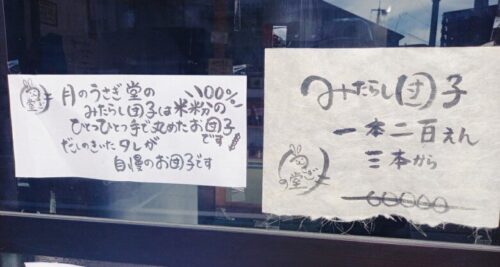 月のうさぎ堂の 100%
みたらし団子は米粉の
ひとつひとつ手で丸めたお団子
です
だしのきいたタレが
自慢のお団子です
みたらし団子
一本二百えん
三本から